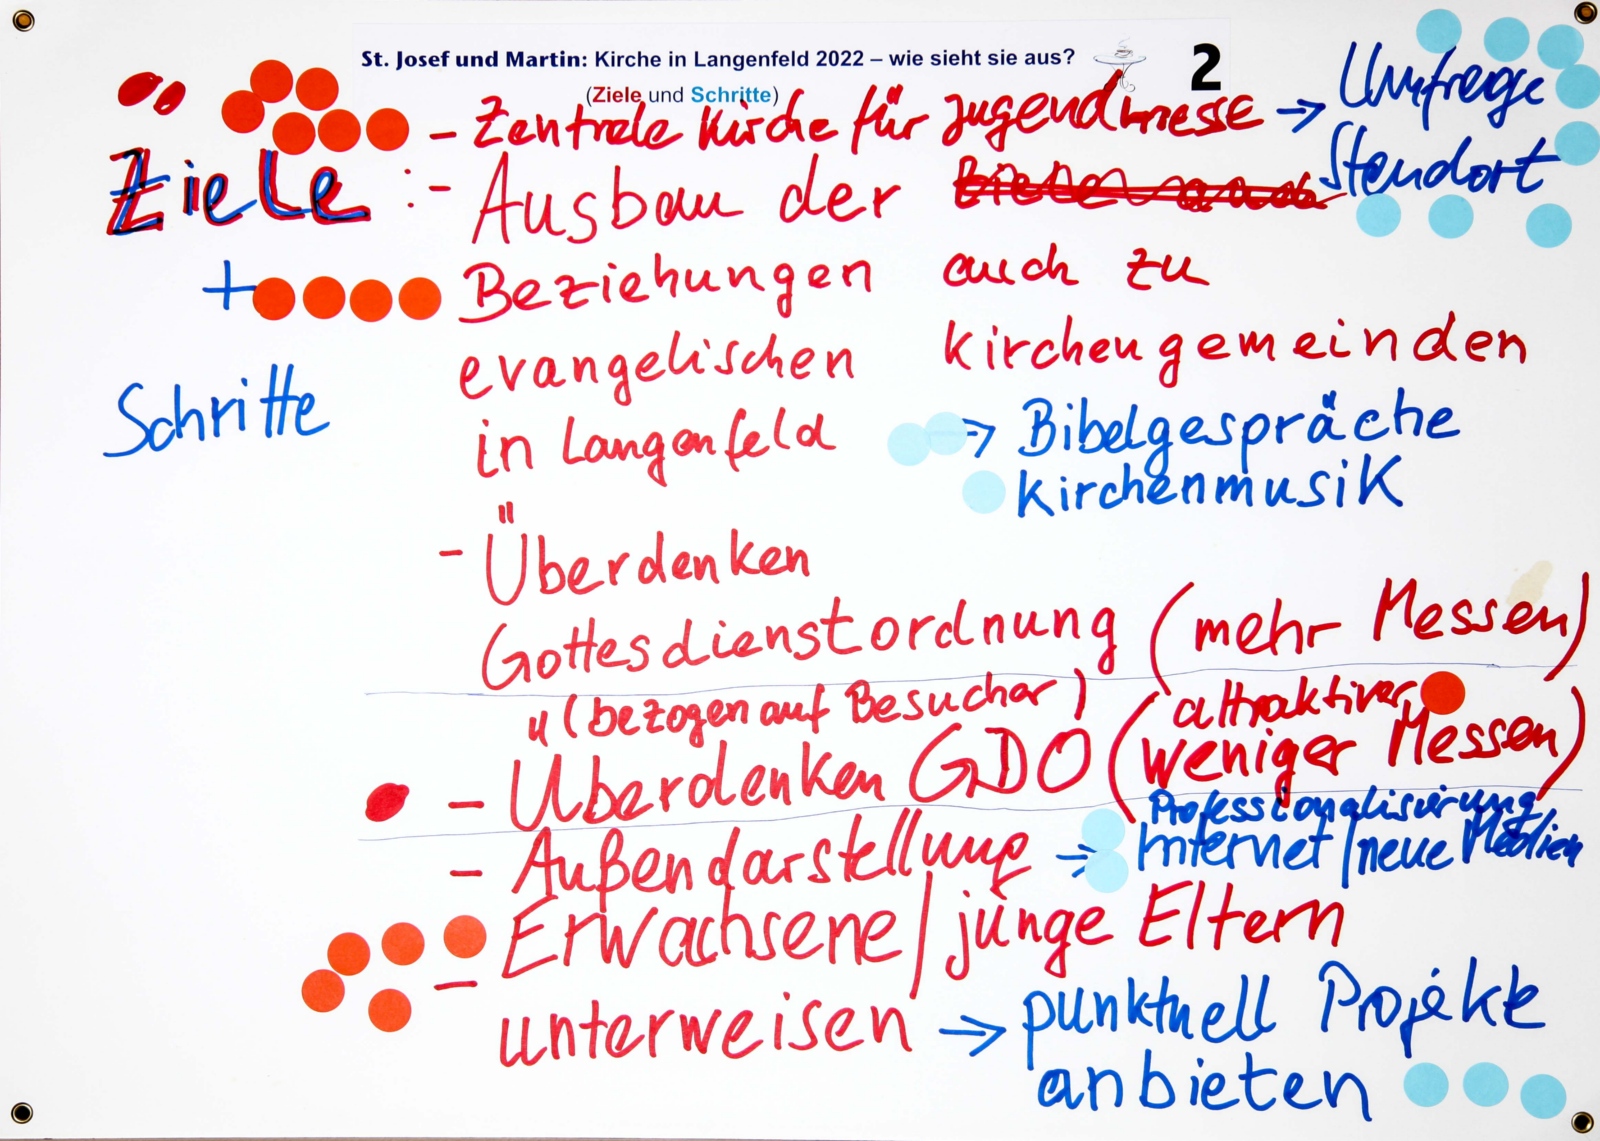 St. Josef und Martin: Kirche in Langenfeld 2022 – wie sieht sie aus?
2
(Ziele und Schritte)
- Zentrale Kirche für Jugendmesse → Umfrage
Standort
Ziele :- Ausbau der
+ Beziehungen auch zu
evangelischen Kirchengemeinden
Schritte
in Langenfeld → Bibelgespräche
Kirchenmusik
- Überdenken
Gottesdienstordnung (mehr Messen)
(bezogen auf Besucher) attraktiver
- Überdenken GDO (weniger Messen)
Professionalisierung
- Außendarstellung → Internet/neue Medien
- Erwachsene/junge Eltern
unterweisen → punktuell Projekte
anbieten